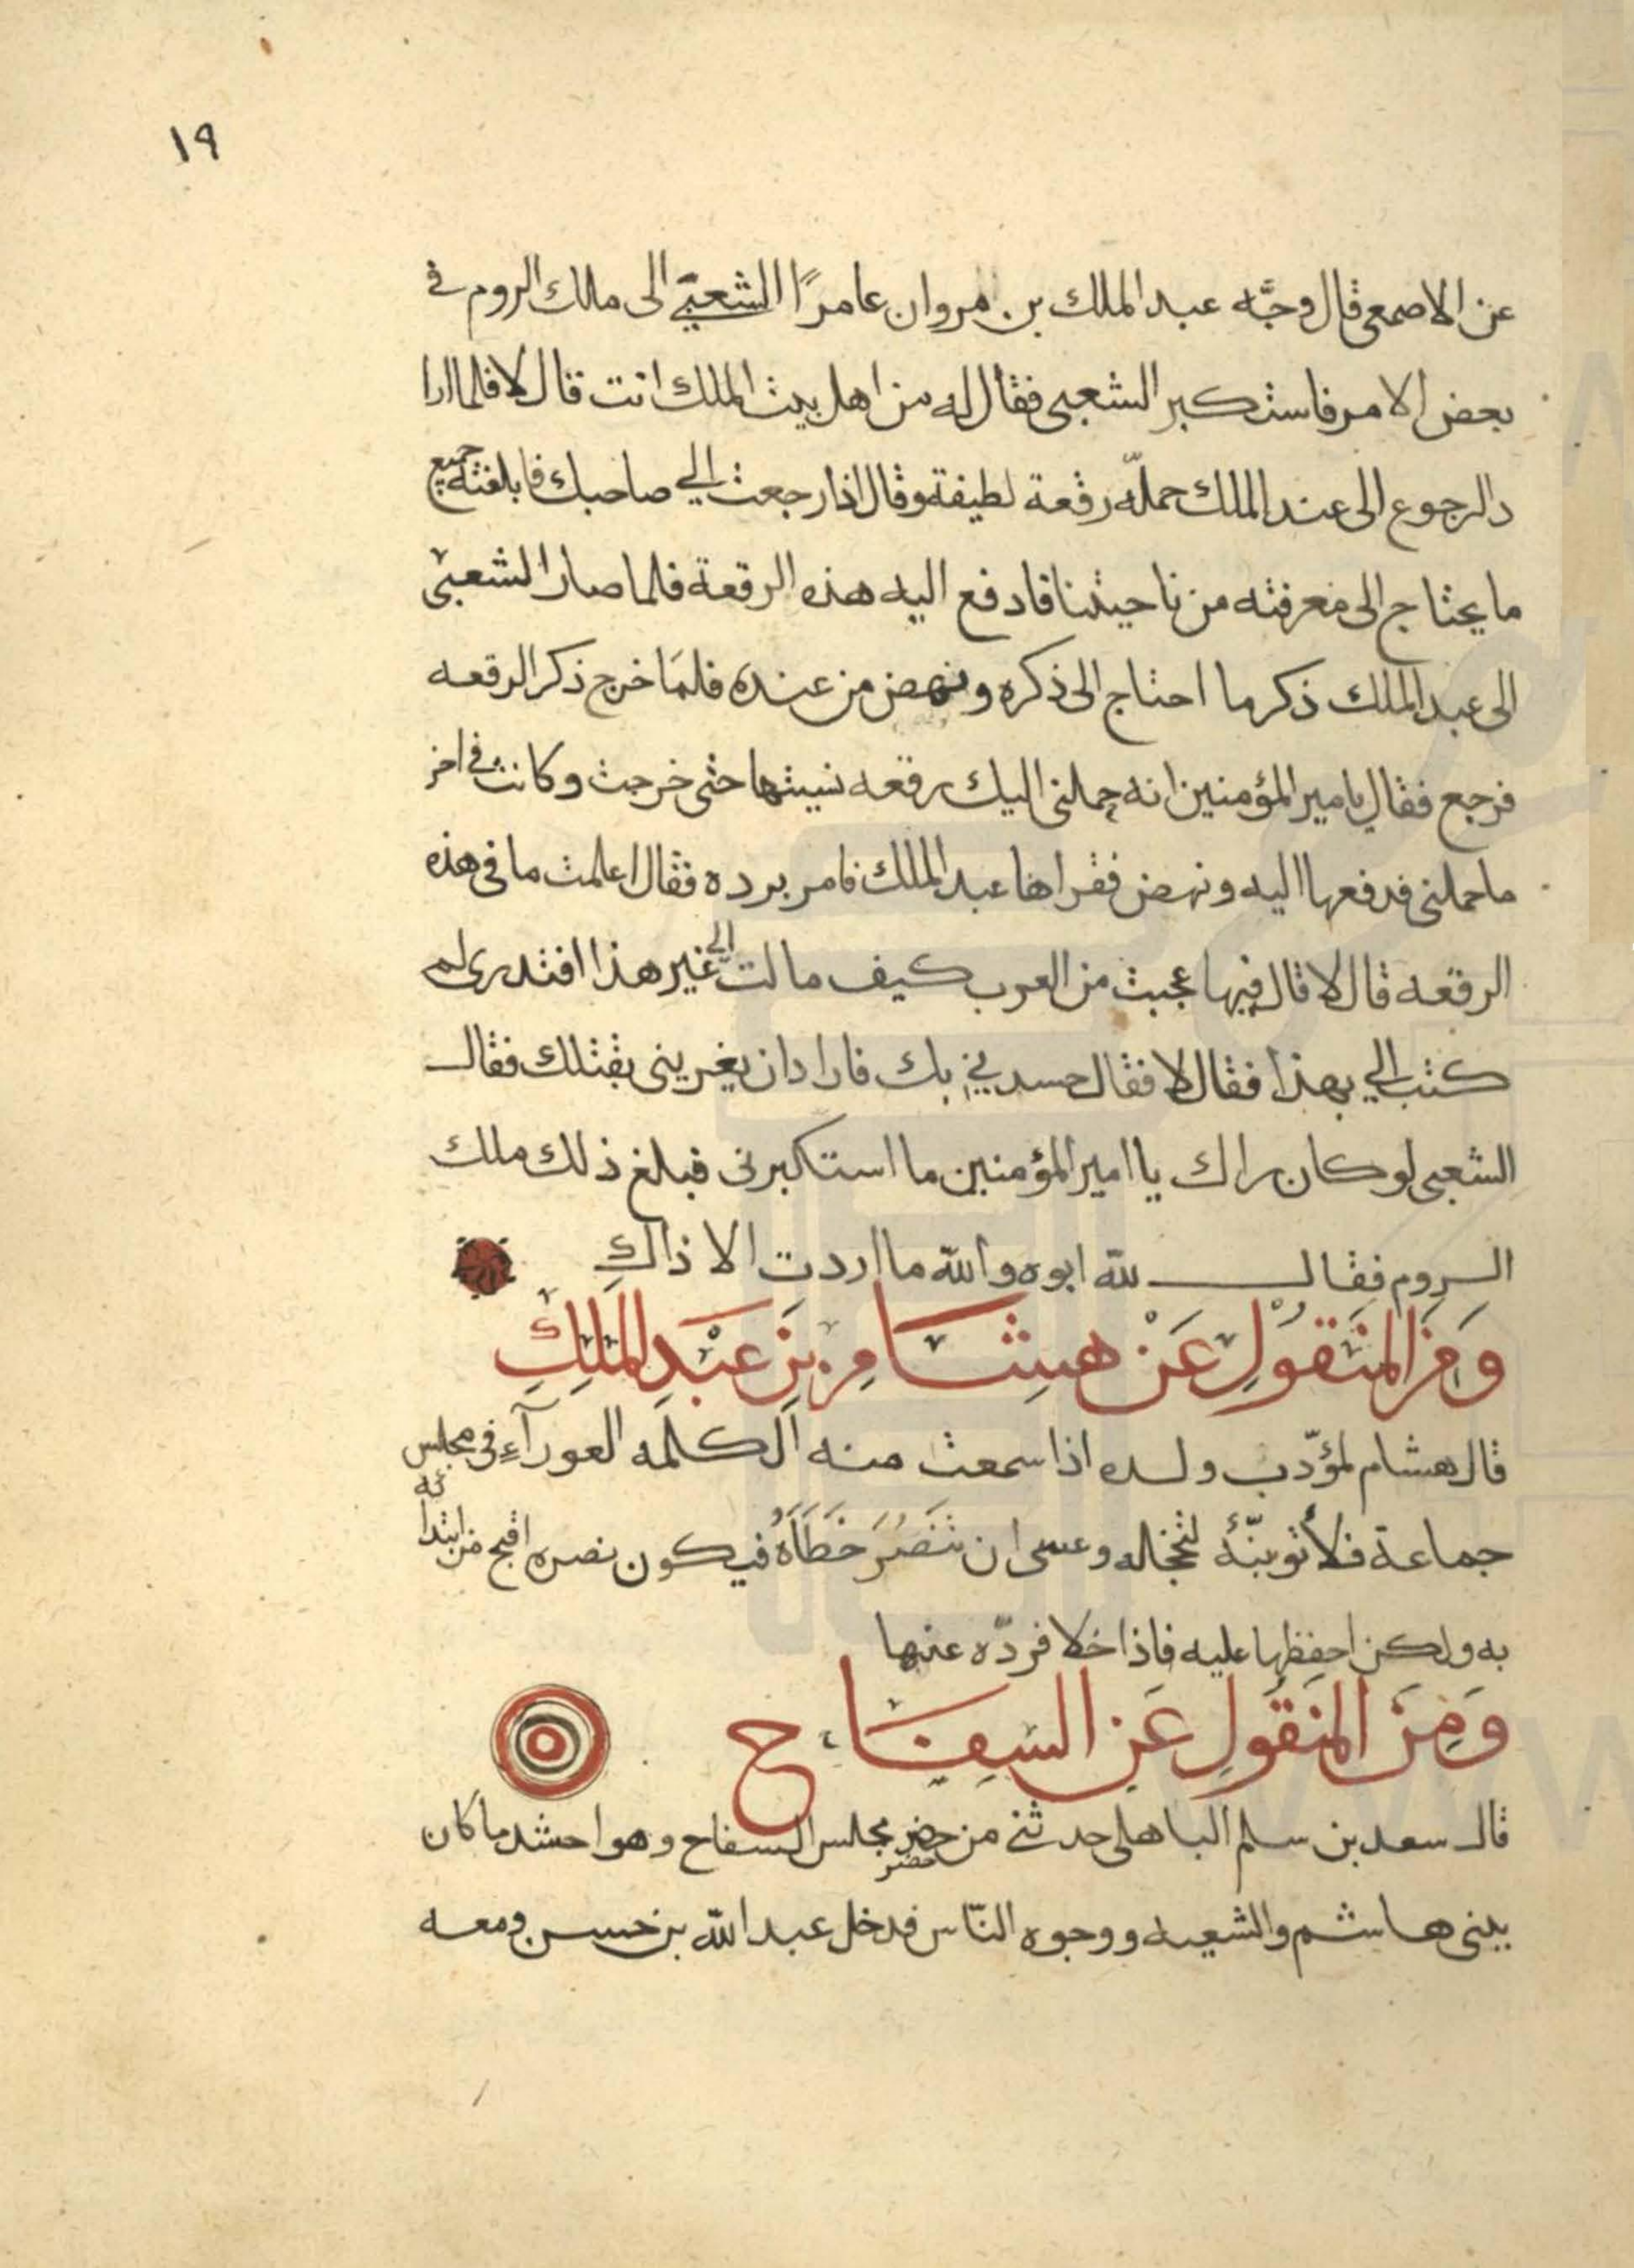 ١٩
عن الاصمعي قال وجّه عبد الملك بن مروان عامرًا الشعبيّ الى ملك الروم في
بعض الامر فاستكبر الشعبى فقال له من اهل بيت الملك انت قال لا فلما ارا
د الرجوع الى عند الملك حمله رقعة لطيفة وقال اذا رجعت الي صاحبك فابلغته جميع
ما يحتاج الى معرفته من ناحيتنا فادفع اليه هذه الرقعة فلما صار الشعبي
الى عبد الملك ذكر ما احتاج الى ذكره ونهض من عنده فلمَا خرج ذكر الرقعه
فرجع فقال يامير المؤمنين انه حملنى اليك رقعه نسيتها حتى خرجت وكانت في اخر
ما حملنى فدفعها اليه ونهض فقراها عبد الملك فامر برده فقال اعلمت ما فى هذه
الرقعه قال لا قال فيها عجبت من العرب كيف مالت الي غير هذا افتدرى لم
كتب الي بهذا فقال لا فقال حسدني بك فاراد ان يغرينى بقتلك فقال
الشعبى لو كان راك يا امير المؤمنين ما استكبرنى فبلغ ذلك ملك
الروم فقال لله ابوه والله ما اردت الا ذاك
وَمِنَ المنقُولِ عَنْ هشَام بِن عَبْدِ الملِكِ
قال هشام لمؤدّب ولده اذا سمعت منه الكلمه العورآءِ فى مجلس
جماعة فلا تونبّهُ لتخجله وعسى ان تنصُرَ خَطَأَهُ فيكون نصره اقبح من ابتدائه
به ولكن احفظها عليه فاذا خلا فردّه عنها
وَمِنَ المنقُولِ عَنِ السَفَاح
قال سعد بن سلم الباهلى حدثني من حضر مجلس السفاح وهو احشد ما كان
حضر
ببنى هاشم والشيعه ووجوه النّاس فدخل عبد الله بن حسن ومعه